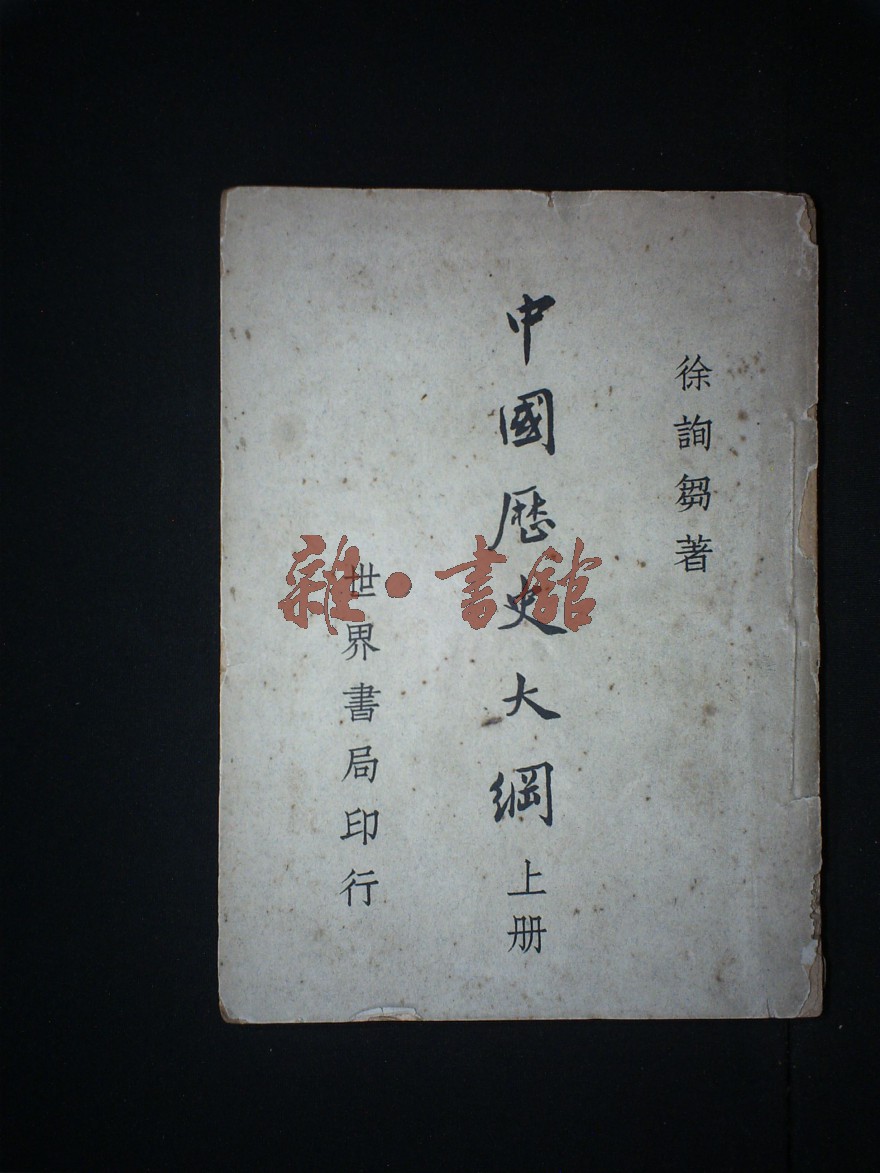 徐詢芻著
中國歷史大綱 上册
世界書局印行
雜·書館